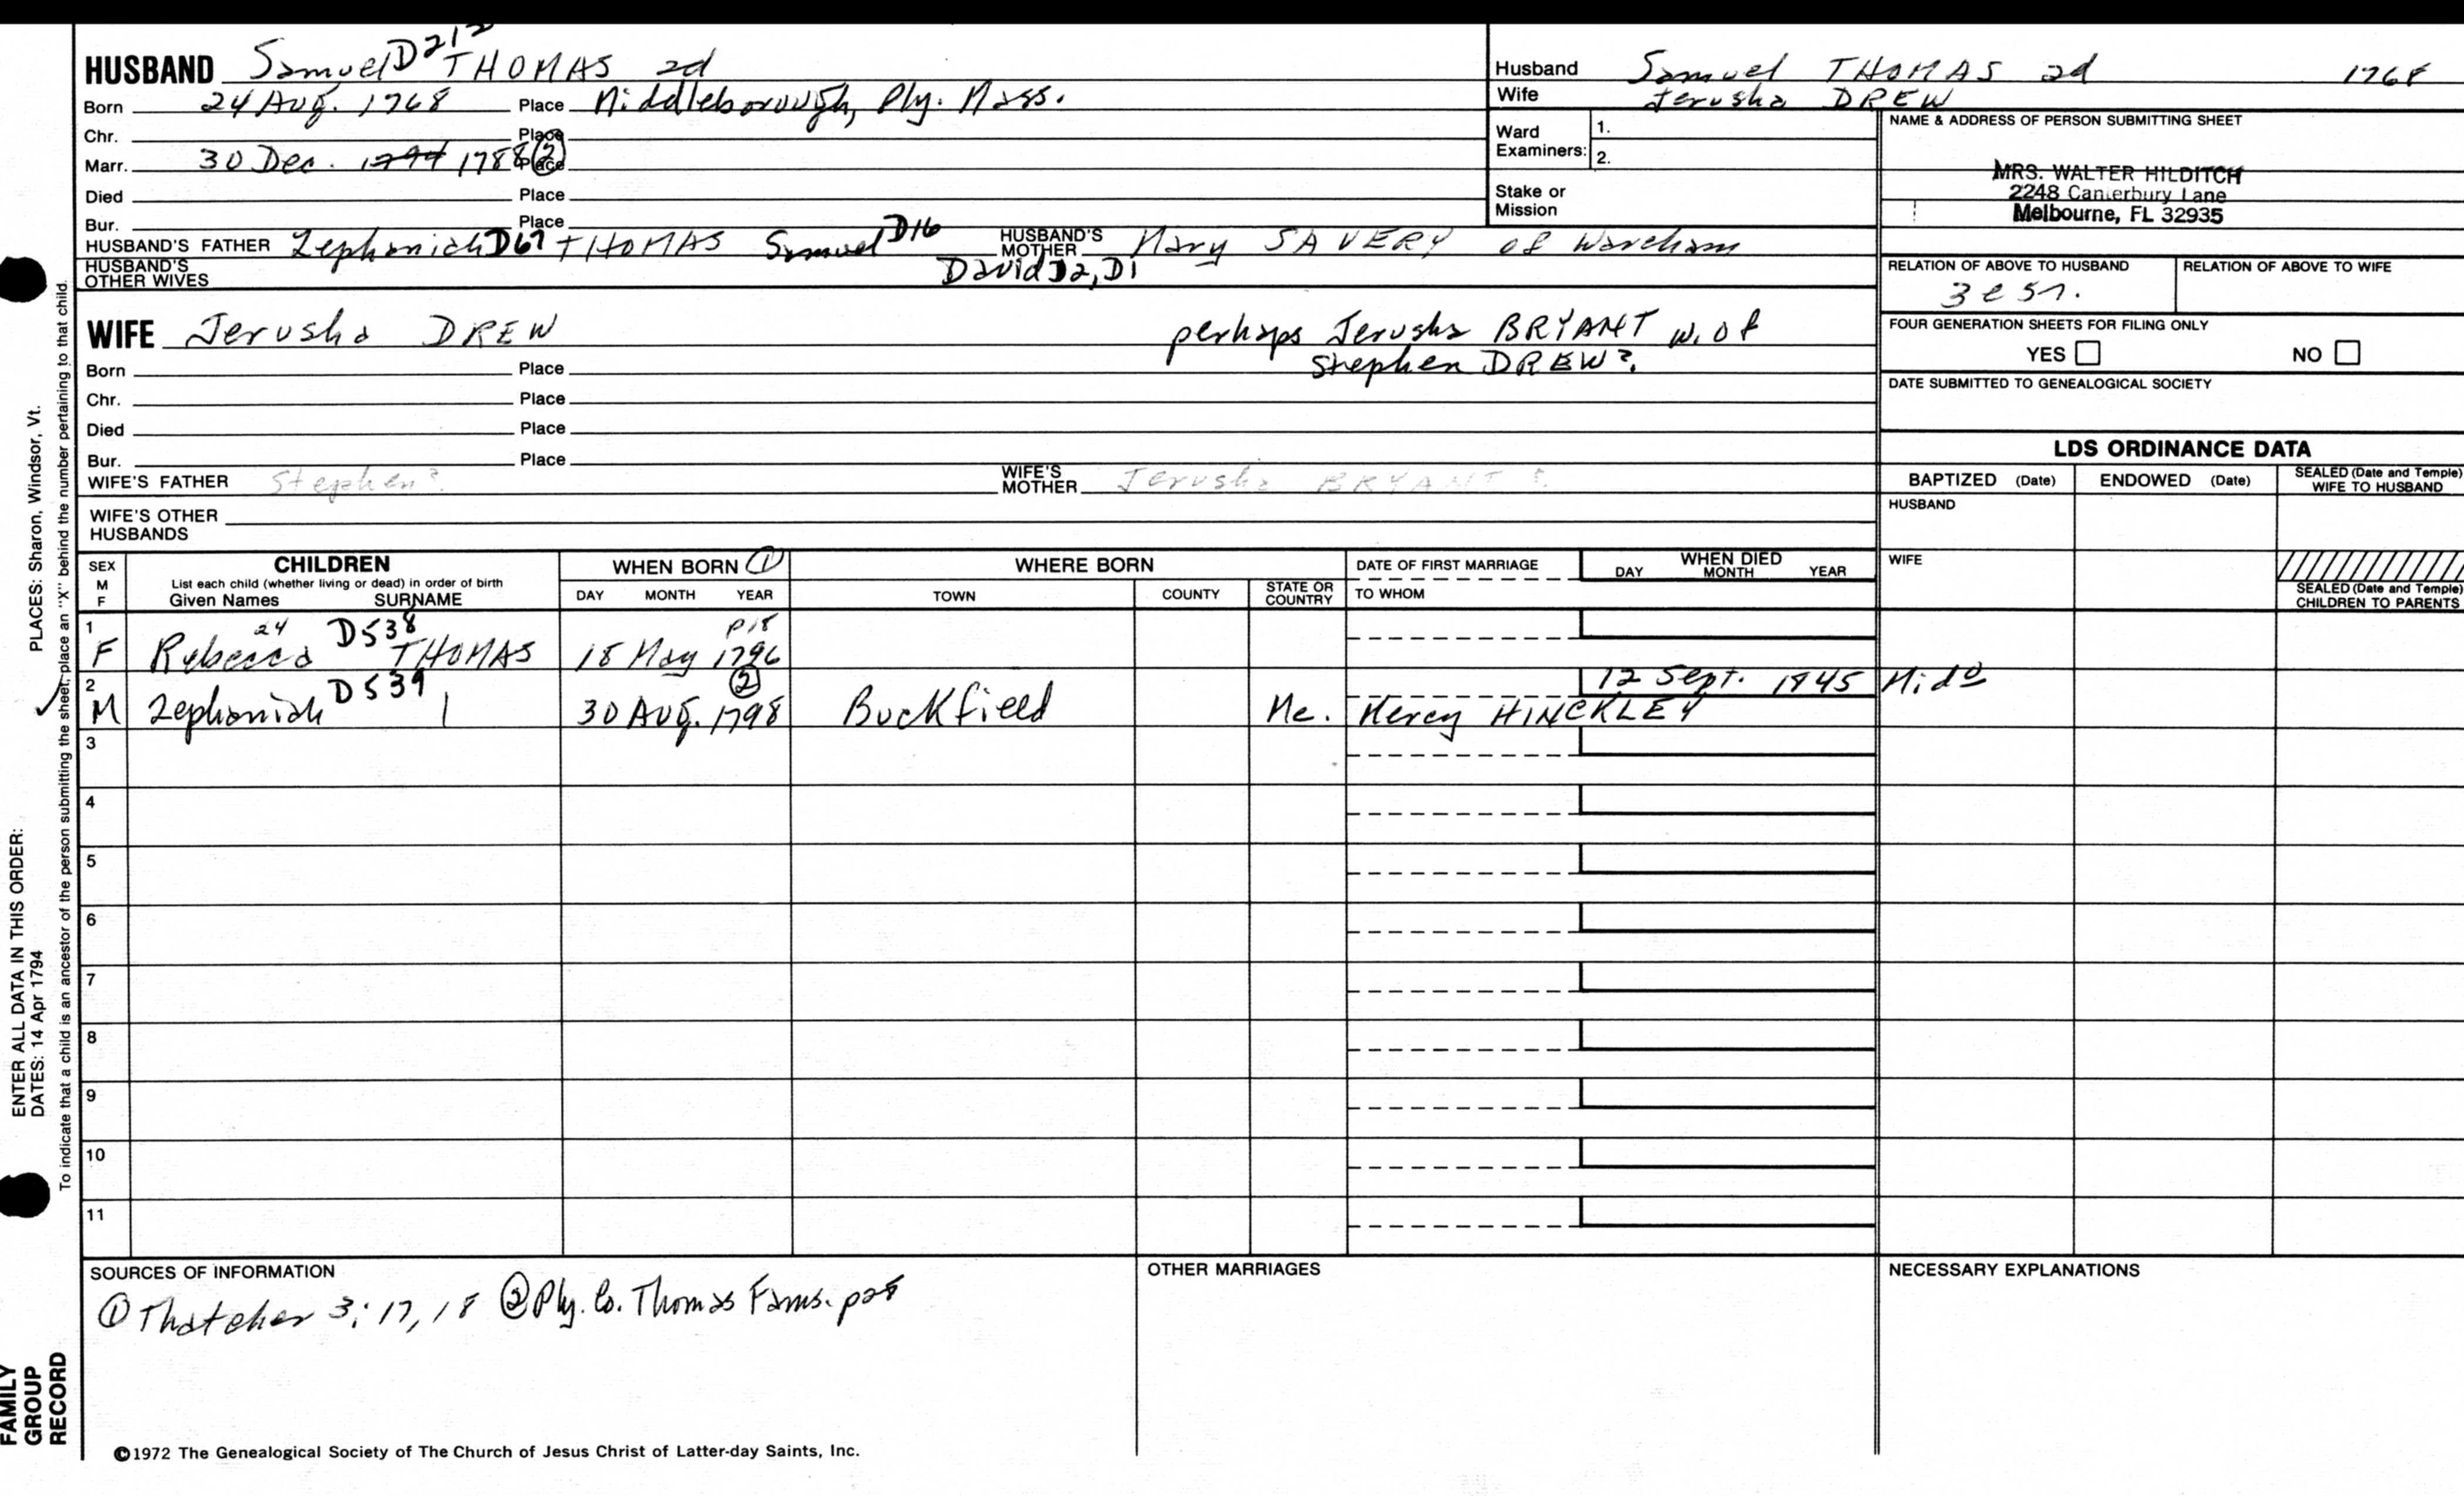 HUSBAND Samuel D212 THOMAS 2d
Born 24 Aug. 1768 Place Middleborough, Ply. Mass.
Chr. Place
Marr. 30 Dec. 1794 1788 (2) Place
Died Place
Bur. Place
HUSBAND'S FATHER Zephaniah D67 THOMAS Samuel D16 HUSBAND'S MOTHER Mary SAVERY of Wareham
HUSBAND'S OTHER WIVES David D2, D1
WIFE Jerusha DREW perhaps Jerusha BRYANT w. of
Stephen DREW?
Born Place
Chr. Place
Died Place
Bur. Place
WIFE'S FATHER Stephen? WIFE'S MOTHER Jerusha BRYANT?
WIFE'S OTHER HUSBANDS
Husband Samuel THOMAS 2d 1768
Wife Jerusha DREW
Ward Examiners: 1.
2.
Stake or Mission
NAME & ADDRESS OF PERSON SUBMITTING SHEET
MRS. WALTER HILDITCH
2248 Canterbury Lane
Melbourne, FL 32935
RELATION OF ABOVE TO HUSBAND RELATION OF ABOVE TO WIFE
FOUR GENERATION SHEETS FOR FILING ONLY
YES NO
DATE SUBMITTED TO GENEALOGICAL SOCIETY
LDS ORDINANCE DATA
BAPTIZED (Date) ENDOWED (Date) SEALED (Date and Temple) WIFE TO HUSBAND
HUSBAND
WIFE
SEALED (Date and Temple) CHILDREN TO PARENTS
SEX M F CHILDREN WHEN BORN (1) WHERE BORN DATE OF FIRST MARRIAGE WHEN DIED
List each child (whether living or dead) in order of birth
Given Names SURNAME DAY MONTH YEAR TOWN COUNTY STATE OR COUNTRY TO WHOM DAY MONTH YEAR
1 24 D538 p18
F Rebecca THOMAS 18 May 1796
2 D539 (2) 12 Sept. 1845 Mido
M Zephaniah 30 Aug. 1798 Buckfield Me. Mercy HINCKLEY
3
4
5
6
7
8
9
10
11
SOURCES OF INFORMATION OTHER MARRIAGES NECESSARY EXPLANATIONS
(1) Thatcher 3:17,18 (2) Ply. Co. Thomas Fams. p28
©1972 The Genealogical Society of The Church of Jesus Christ of Latter-day Saints, Inc.
FAMILY GROUP RECORD
ENTER ALL DATA IN THIS ORDER:
DATES: 14 Apr 1794 PLACES: Sharon, Windsor, Vt.
To indicate that a child is an ancestor of the person submitting the sheet, place an "X" behind the number pertaining to that child.